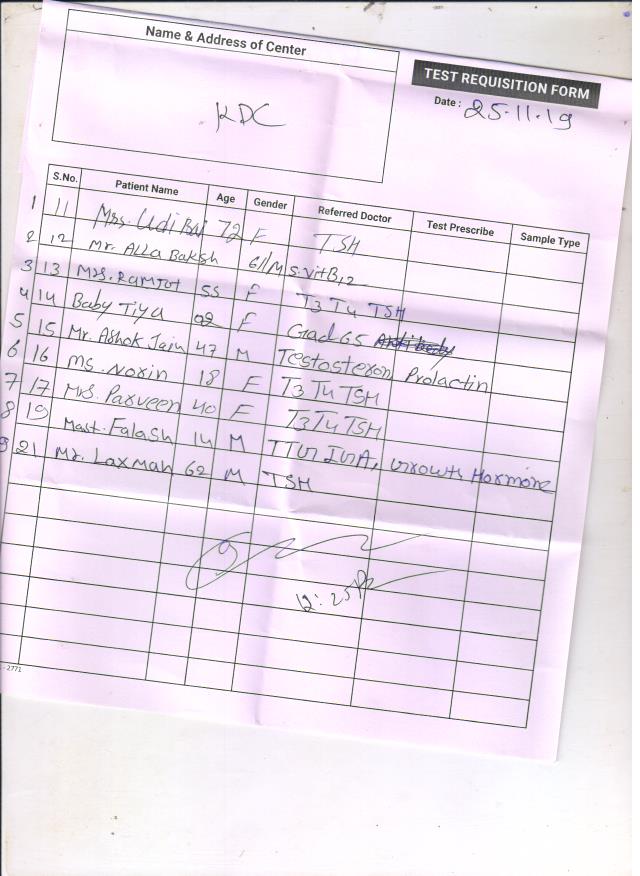 Name & Address of Center
KDC
TEST REQUISITION FORM
Date : 25.11.19
S.No. Patient Name Age Gender Referred Doctor Test Prescribe Sample Type
1 11 Mrs. Udi Bai 72 F TSH
2 12 Mr. Alla Baksh 61 M S. Vit B12
3 13 Mrs. Ramtot 55 F T3 T4 TSH
4 14 Baby Tiya 08 F Gad 65
5 15 Mr. Ashok Jain 47 M Testosteron Prolactin
6 16 Ms. Norin 18 F T3 T4 TSH
7 17 Mrs. Parveen 40 F T3 T4 TSH
8 19 Mast. Falash 14 M Growth Hormone
9 21 Mr. Laxman 62 M TSH
12:25
- 2771